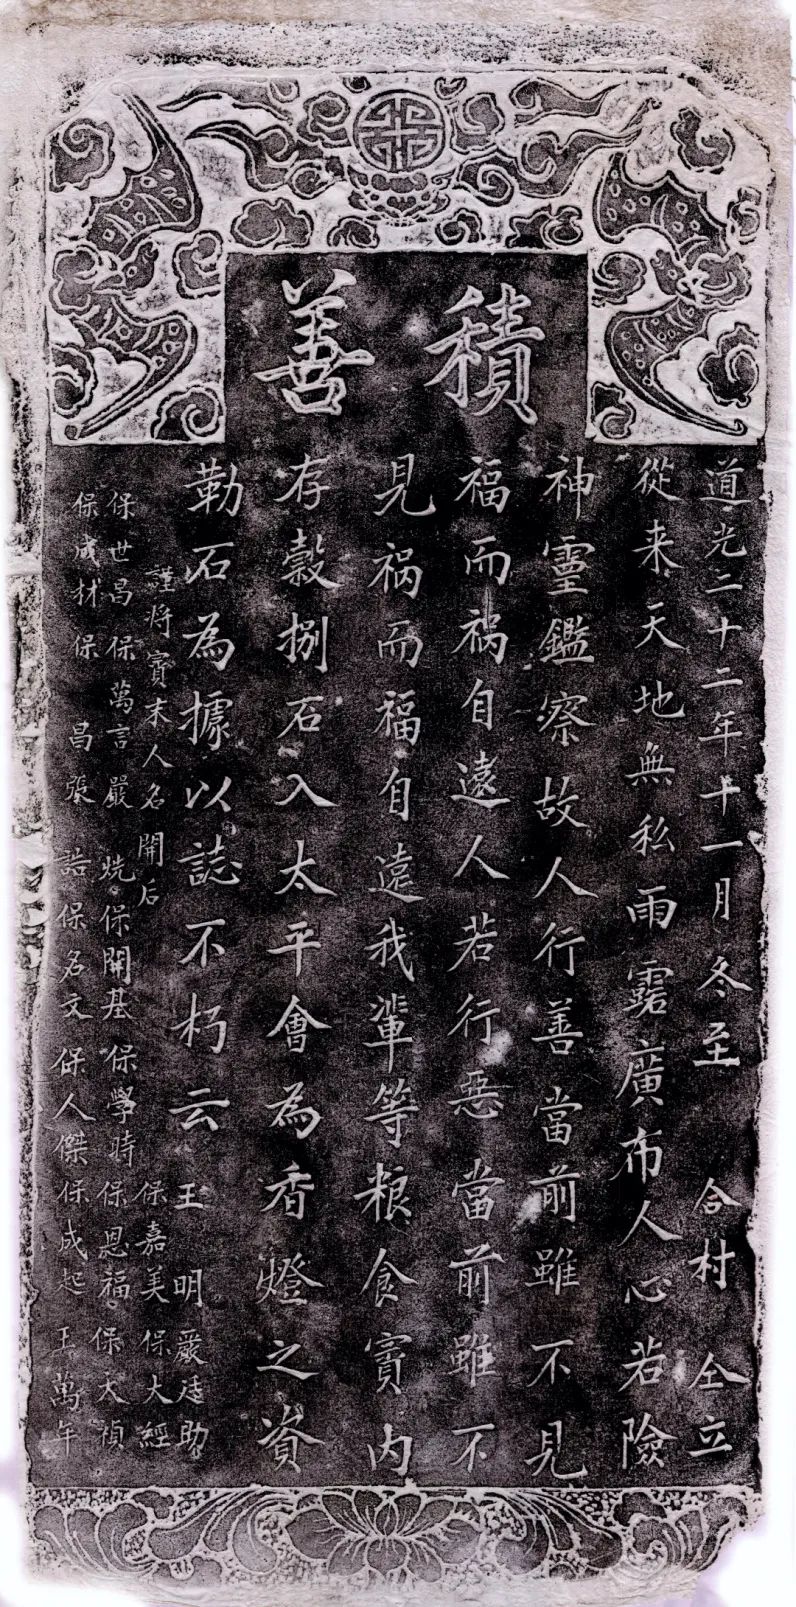 積善
道光二十二年十一月冬至 合村 仝立
從来天地無私雨露廣布人心若險
神靈鑑察故人行善當前雖不見
福而祸自遠人若行惡當前雖不
見祸而福自遠我輩等粮食賨内
存榖捌石入太平會為香燈之資
勒石為據以誌不朽云 王明 嚴廷助
謹将賨末人名開后 保嘉美 保大經
保世昌 保萬言 嚴烧 保開基 保學時 保恩福 保天禎
保成材 保昌 張誥 保名文 保人傑 保成起 王萬年